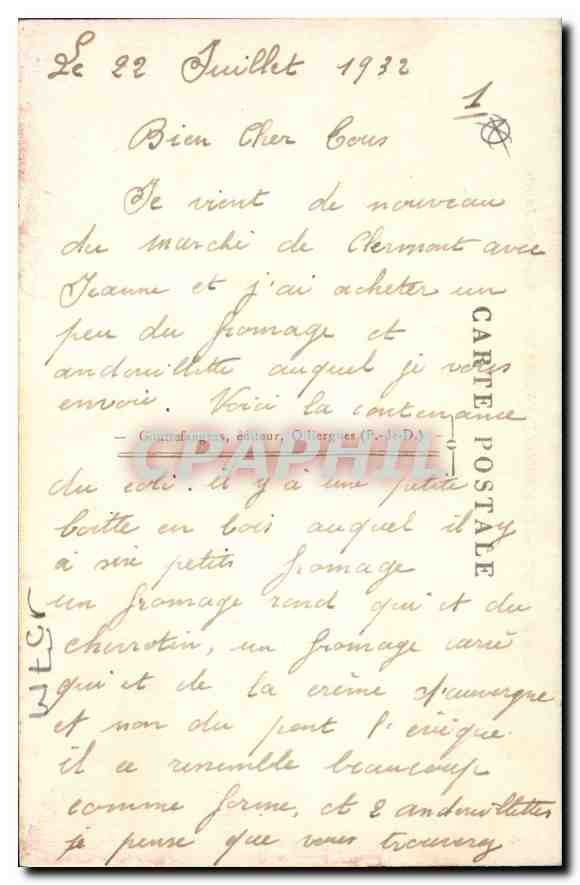 Le 22 Juillet 1932
1
Bien Cher Tous
Je vient de nouveau
du marché de Clermont avec
Jeanne et j'ai acheter un
peu du fromage et
andouillette auquel je vous
envoie. Voici la contenance
— Gouttefangeas, éditeur, Olliergues (P.-de-D.) —
CPAPHIL
CARTE POSTALE
du coli. il y a une petite
boitte en bois auquel il y
à six petits fromage
un fromage rond qui et du
chevrotin, un fromage carré
qui et de la crème d'auvergne
et non du pont l'évèque
il ce ressemble beaucoup
comme forme, et 2 andouillettes
je pense que vous trouverez